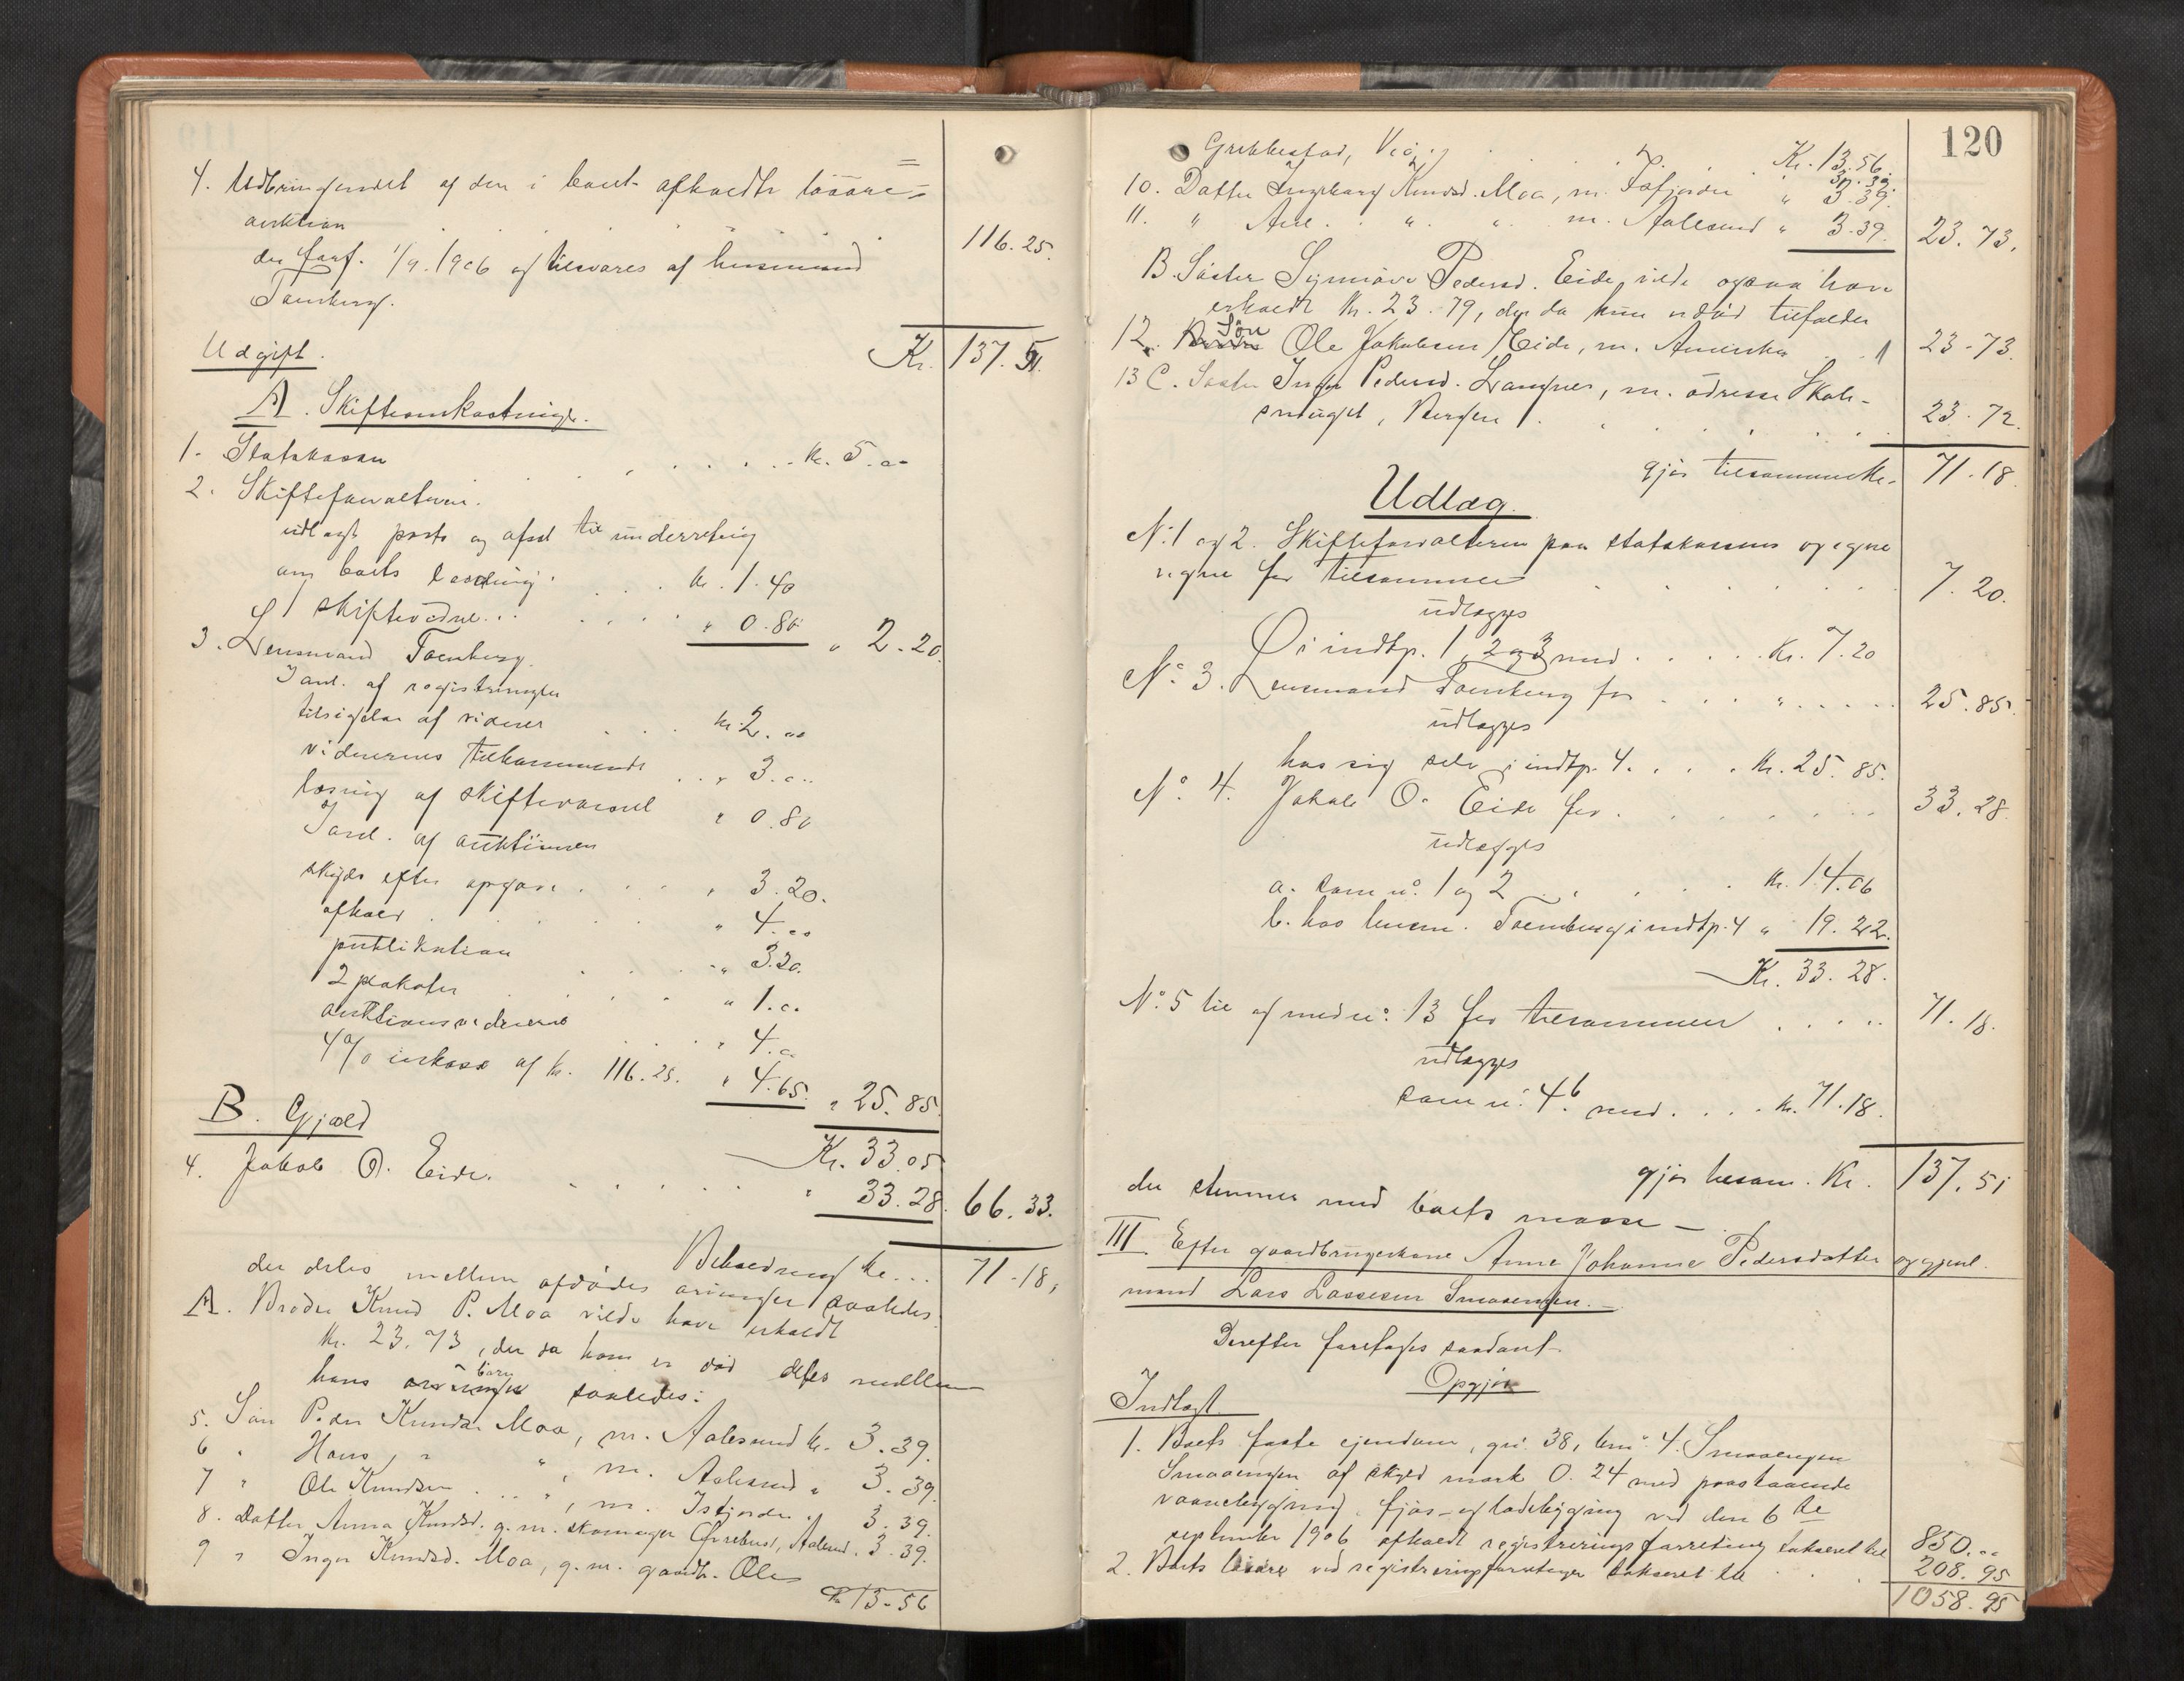 4. Udbringendet af den i boet afholdte løsøre=
auktion . . . . . . 116.25.
der forf. 1/9.1906 og tilsvares af lensmand
Tornberg.
Kr. 137.51.
Udgift.
A. Skifteomkostninger.
1. Statskassen . . . . . . kr. 5.00
2. Skifteforvalteren.
udlagt porto og afsd til underretning
ang boets ... . . . kr. 1.40
f skiftevidne . . . . . " 0.80 " 2.20.
3. Lensmand Tornberg.
Iand. af registreringen
tilsigelse af vidner . . . kr. 2.00
vidnernes tilkommende . . " 3.00
løsning af skiftevarsel " 0.80
Iand. af auktionen
skyds efter opgave . . . " 3.20.
afhold . . . . " 4.00
publikation . . . " 3.20.
2 plakater . . . . " 1.00
auktionsvidnerne . . . " 4.00
4% inkasso af kr. 116.25. " 4.65. " 25.85.
Kr. 33.05
B. Gjæld
4. Jakob O. Eide. . . . . . " 33.28 66.33.
Beholdning kr. . . 71.18,
der deles mellem afdødes arvinger saaledes.
A. Broder Knud P. Moa vilde have erholdt
kr. 23.73, der da han er død deles mellem
hans børn saaledes:
5. Søn Peder Knudsen Moa, m. Aalesund kr. 3.39.
6 " Hans " " , m. Aalesund " 3.39.
7 " Ole Knudsen . . " , m. Isfjorden " 3.39.
8. Datter Anna Knudsd. g. m. skomager ..., Aalesund. 3.39.
9 " Inger Knudsd. Moa, g. m. gaardbr. Ole
Kr 13.56
120
Grebbestad, Veøy . . . . . Kr. 13.56.
3.39.
10. Datter Ingeborg Knudsd. Moa, m. Isfjorden " 3.39.
11. " Ane . " . " . m. Aalesund " 3.39. 23.73.
B. Søster Synnøve Pedersd. Eide vilde ogsaa have
erholdt kr. 23.79, der da hun er død tilfalder
12. Søn Ole Jakobsen Eide, m. Amerika . . 23.73.
13 C. Søster Inger Pedersd. Langnes, m. adresse Skole-
smuget, Bergen . . . . . . 23.72.
gjør tilsammen kr. 71.18
Udlæg.
No. 1 og 2. Skifteforvalteren paa statskassens og egne
vegne for tilsammen . . . . . . 7.20.
udlægges
Ø i indtp. 1, 2 og 3 med . . . . Kr. 7.20
No. 3. Lensmand Tornberg for . . . " . . . . . 25.85.
udlægges
hos sig selv i indtp. 4. . . . Kr. 25.85.
No. 4. Jakob O. Eide for . . . . . . . 33.28
udlægges
a. som no. 1 og 2 . . . . . kr. 14.06
b. hos lensm. Tornberg i indtp. 4 " 19.22.
Kr. 33.28.
No. 5 til og med no. 13 for tilsammen . . . . . 71.18.
udlægges
som no. 4b med . . . . kr. 71.18.
gjør tilsam. Kr. 137.51
der stemmer med boets masse —
III Efter gaardbrugerkone Anne Johanne Pedersdatter og gjenl.
mand Lars Lassesen Smaaengen.
Derefter foretages saadant
Opgjør
Indtægt
1. Boets faste eiendom, gno. 38, bno. 4. Smaaengen
Smaaengen af skyld mark 0.24 med paastaaende
vaanebygning, fjøs- og ladebygning ved den 6te
september 1906 afholdt registreringsforretning takseret til 850.00
2. Boets løsøre ved registreringsforretningen takseret til . . . 208.95
1058.95